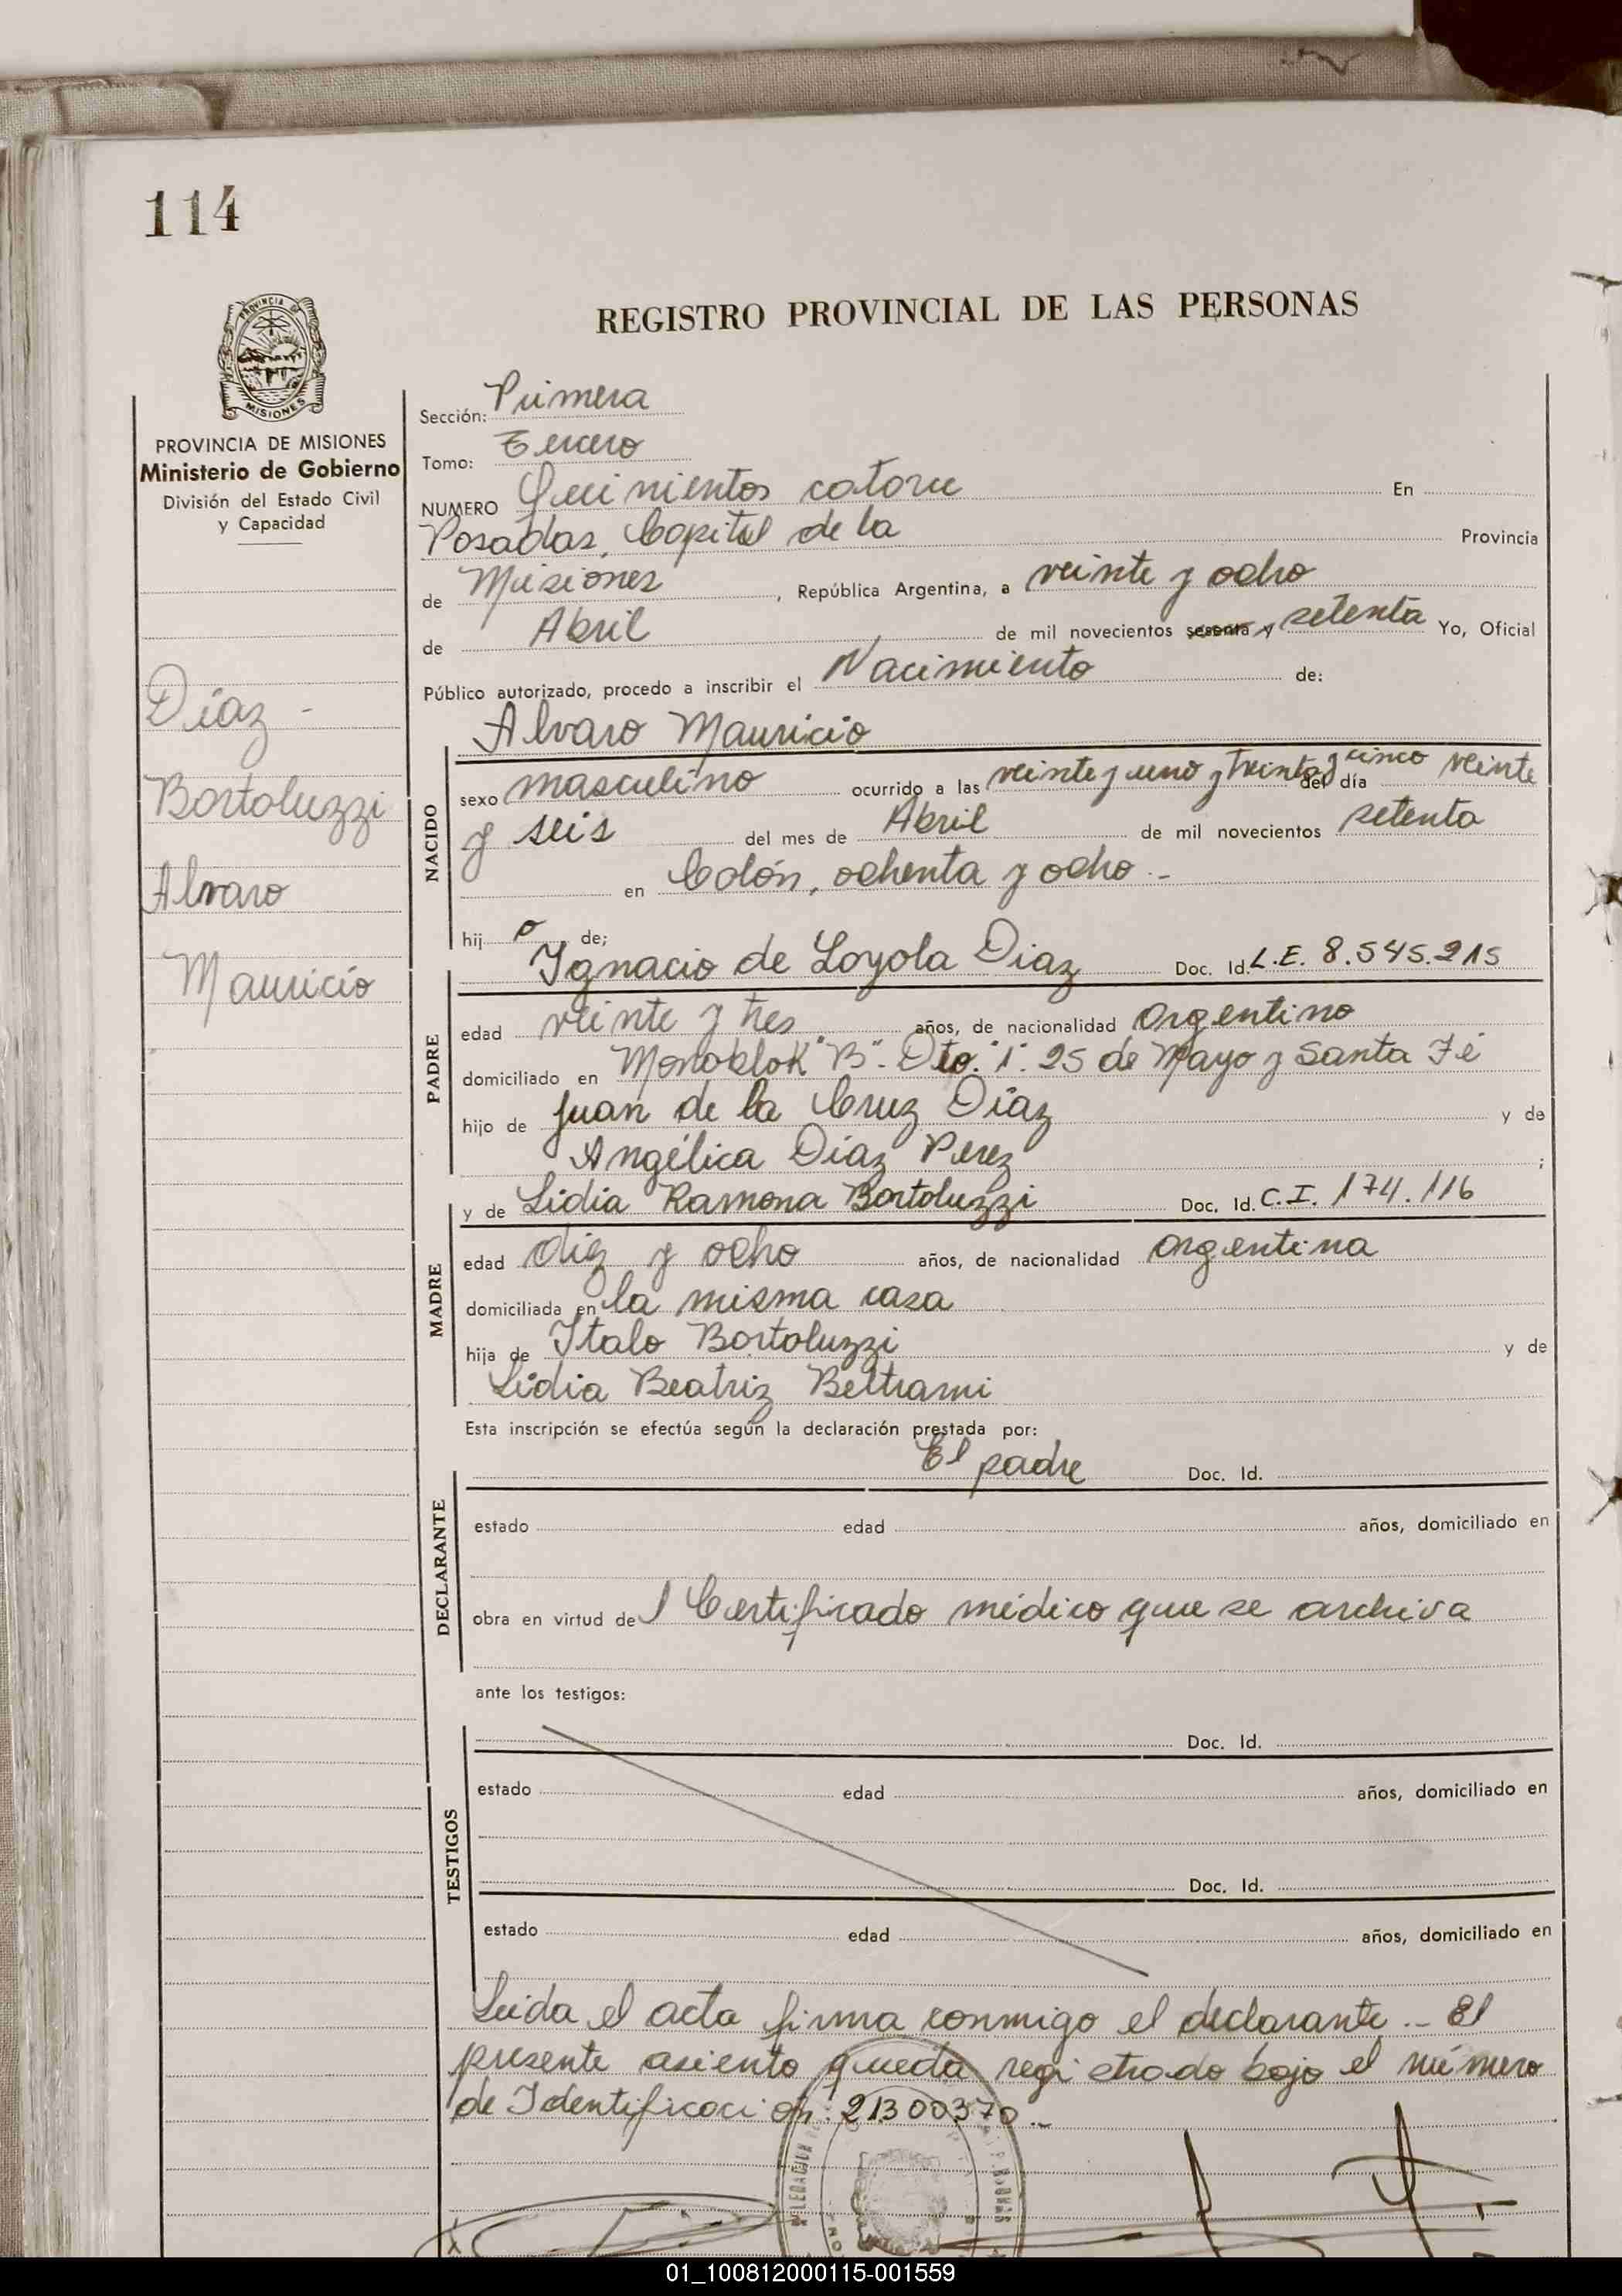 114
REGISTRO PROVINCIAL DE LAS PERSONAS
PROVINCIA
MISIONES
PROVINCIA DE MISIONES
Ministerio de Gobierno
División del Estado Civil
y Capacidad
Díaz -
Bortoluzzi
Alvaro
Mauricio
Sección: Primera
Tomo: Tercero
NUMERO Quinientos catorce En
Posadas, Capital de la Provincia
de Misiones, República Argentina, a veinte y ocho
de Abril de mil novecientos sesenta y setenta Yo, Oficial
Público autorizado, procedo a inscribir el Nacimiento de:
Alvaro Mauricio
NACIDO
sexo masculino ocurrido a las veinte y uno y treinta y cinco del día veinte
y seis del mes de Abril de mil novecientos setenta
en Colón, ochenta y ocho.-
hijo de;
Ignacio de Loyola Diaz Doc. Id. L.E. 8.545.215
PADRE
edad veinte y tres años, de nacionalidad argentino
domiciliado en Monoblok "B". Dto. "1". 25 de Mayo y Santa Fé
hijo de Juan de la Cruz Díaz y de
Angélica Díaz Perez ;
y de Lidia Ramona Bortoluzzi Doc. Id. C.I. 174.116
MADRE
edad diez y ocho años, de nacionalidad argentina
domiciliada en la misma casa
hija de Italo Bortoluzzi y de
Lidia Beatriz Beltrami
Esta inscripción se efectúa según la declaración prestada por:
El padre Doc. Id.
DECLARANTE
estado edad años, domiciliado en
obra en virtud del Certificado médico que se archiva
ante los testigos:
Doc. Id.
TESTIGOS
estado edad años, domiciliado en
Doc. Id.
estado edad años, domiciliado en
Leída el acta firma conmigo el declarante.- El
presente asiento queda registrado bajo el número
de Identificación: 21300370.-
01_100812000115-001559